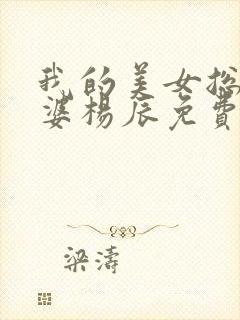 我的美女总
婆杨辰免费
梁涛